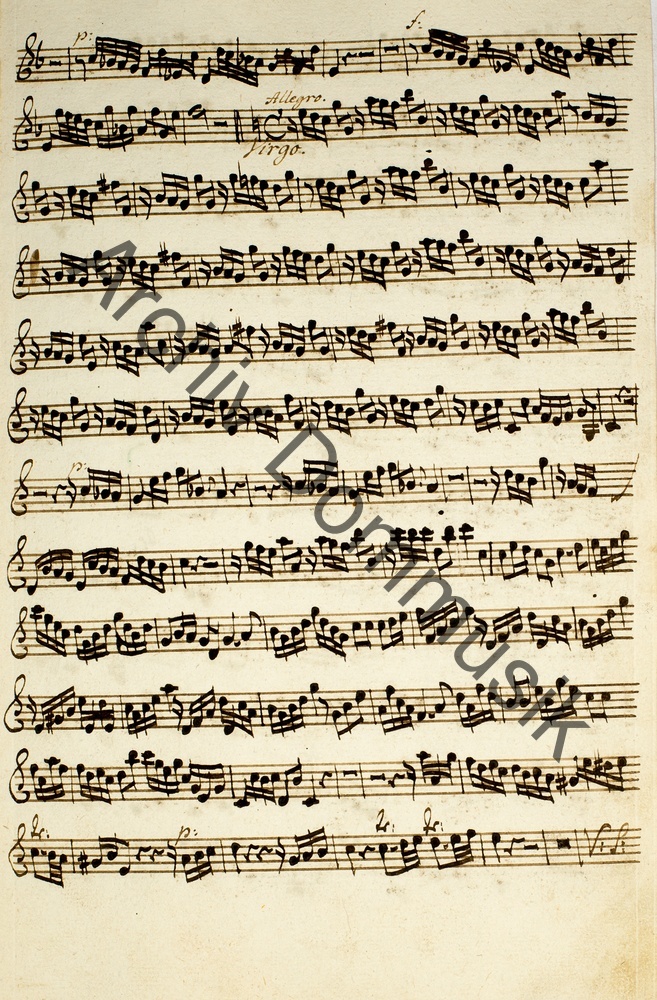 p: f:
Allegro.
Virgo.
p:
tr: p: tr: tr:
Archiv Dommusik